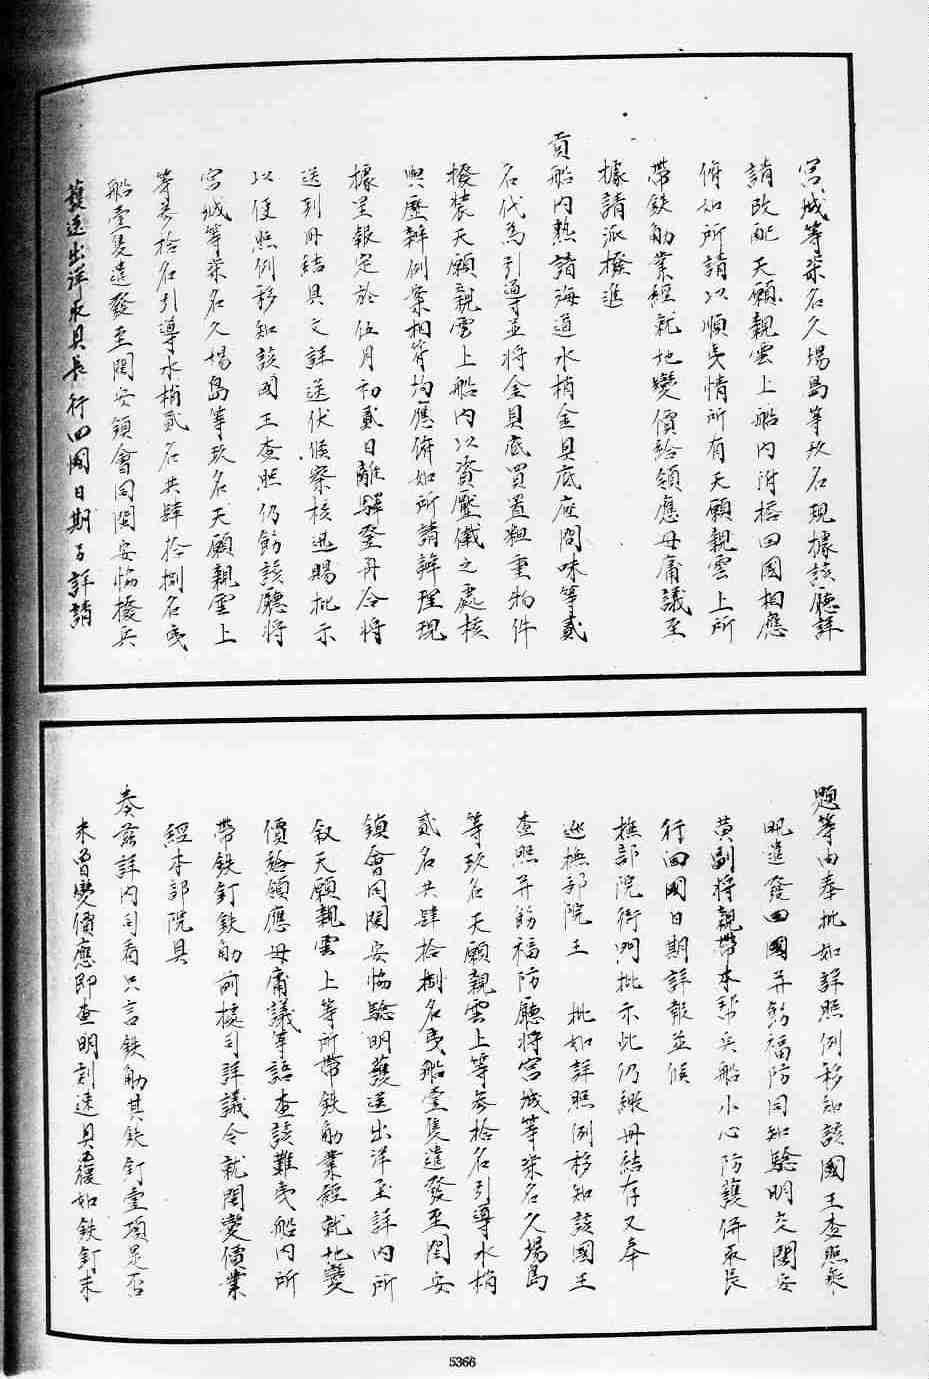 宮城等柒名久場島等玖名現據該廳詳
請改配天願親雲上船內附搭回國相應
俯如所請以順夷情所有天願親雲上所
帶鉄觔業經就地變價給領應毋庸議至
據請派撥進
貢船內熟諳海道水梢金具底座間味等貳
名代為引導並將金具底買置粗重物件
撥裝天願親雲上船內以資壓儎之處核
與歷辦例案相符均應俯如所請辦理現
據呈報定於伍月初貳日離驛登舟合將
送到冊結具文詳送伏候察核迅賜批示
以便照例移知該國王查照仍飭該廳將
宮城等柒名久場島等玖名天願親雲上
等叁拾名引導水梢貳名共肆拾捌名夷
船壹隻遣發至閩安鎮會同閩安協撥兵
護送出洋取具長行回國日期另詳請
題等由奉批如詳照例移知該國王查照乘
汛遣發回國并飭福防同知驗明交閩安
黃副將親帶本幇兵船小心防護併取長
行回國日期詳報並候
撫部院衙門批示此仍繳冊結存又奉
巡撫部院王　批如詳照例移知該國王
查照并飭福防廳將宮城等柒名久場島
等玖名天願親雲上等叁拾名引導水梢
貳名共肆拾捌名夷船壹隻遣發至閩安
鎮會同閩安協驗明護送出洋至詳內所
敘天願親雲上等所帶鉄觔業經就地變
價給領應毋庸議等語查該難夷船內所
帶鉄釘鉄觔前據司詳議令就閩變價業
經本部院具
奏茲詳內司看只言鉄觔其鉄釘壹項是否
未曾變價應即查明剋速具覆如鉄釘未
5366